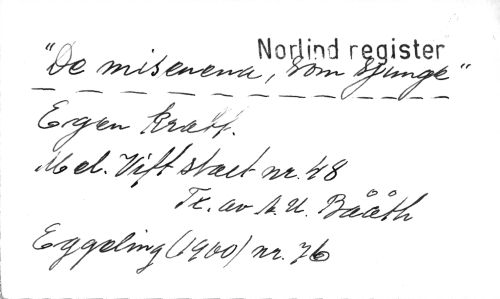 Norlind register
"De miserera, som sjunga"
Egen kraft.
Mel. Vift staet nr. 48
Tx. av A. U. Bååth
Eggeling (1900) nr. 76